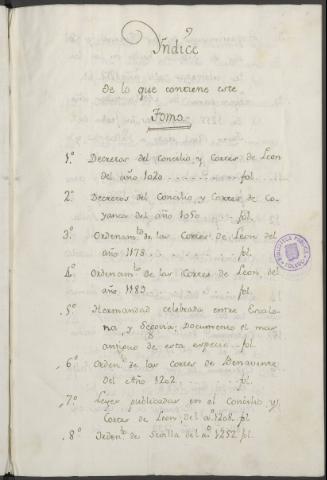 Yndice
De lo que contiene este
Tomo
1º. Decretos del Concilio, y Cortes de Leon
del año 1020 . . . . . . . . . fol.
2º. Decretos del Concilio y Cortes de Co-
yanca del año 1050 . . . . fol.
3º. Ordenamtº. de las Cortes de Leon del
año 1178 . . . . . . . . . . fol.
4º. Ordenamtº de las Cortes de Leon, del
año 1189 . . . . . . . . . . fol.
5º Hermandad celebrada entre Escalo-
na, y Segovia; Documento el mas
antiguo de esta especie . fol.
6º Ordentº. de las Cortes de Benavente
del Año 1202 . . . . . . . fol.
7º Leyes publicadas en el Concilio, y
Cortes de Leon, del aº. 1208. fol.
8º Ordentº. de Sevilla del aº. 1252 fol.
BIBLIOTECA PUBLICA
TOLEDO